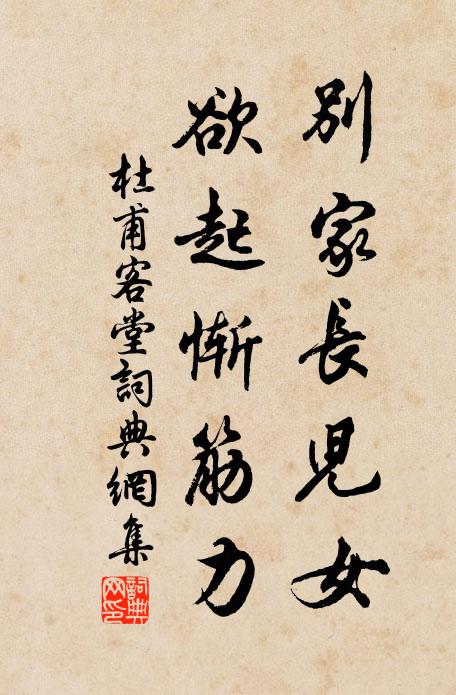 別家長兒女
欲起慚筋力
杜甫客堂詞典網集
詞典網印